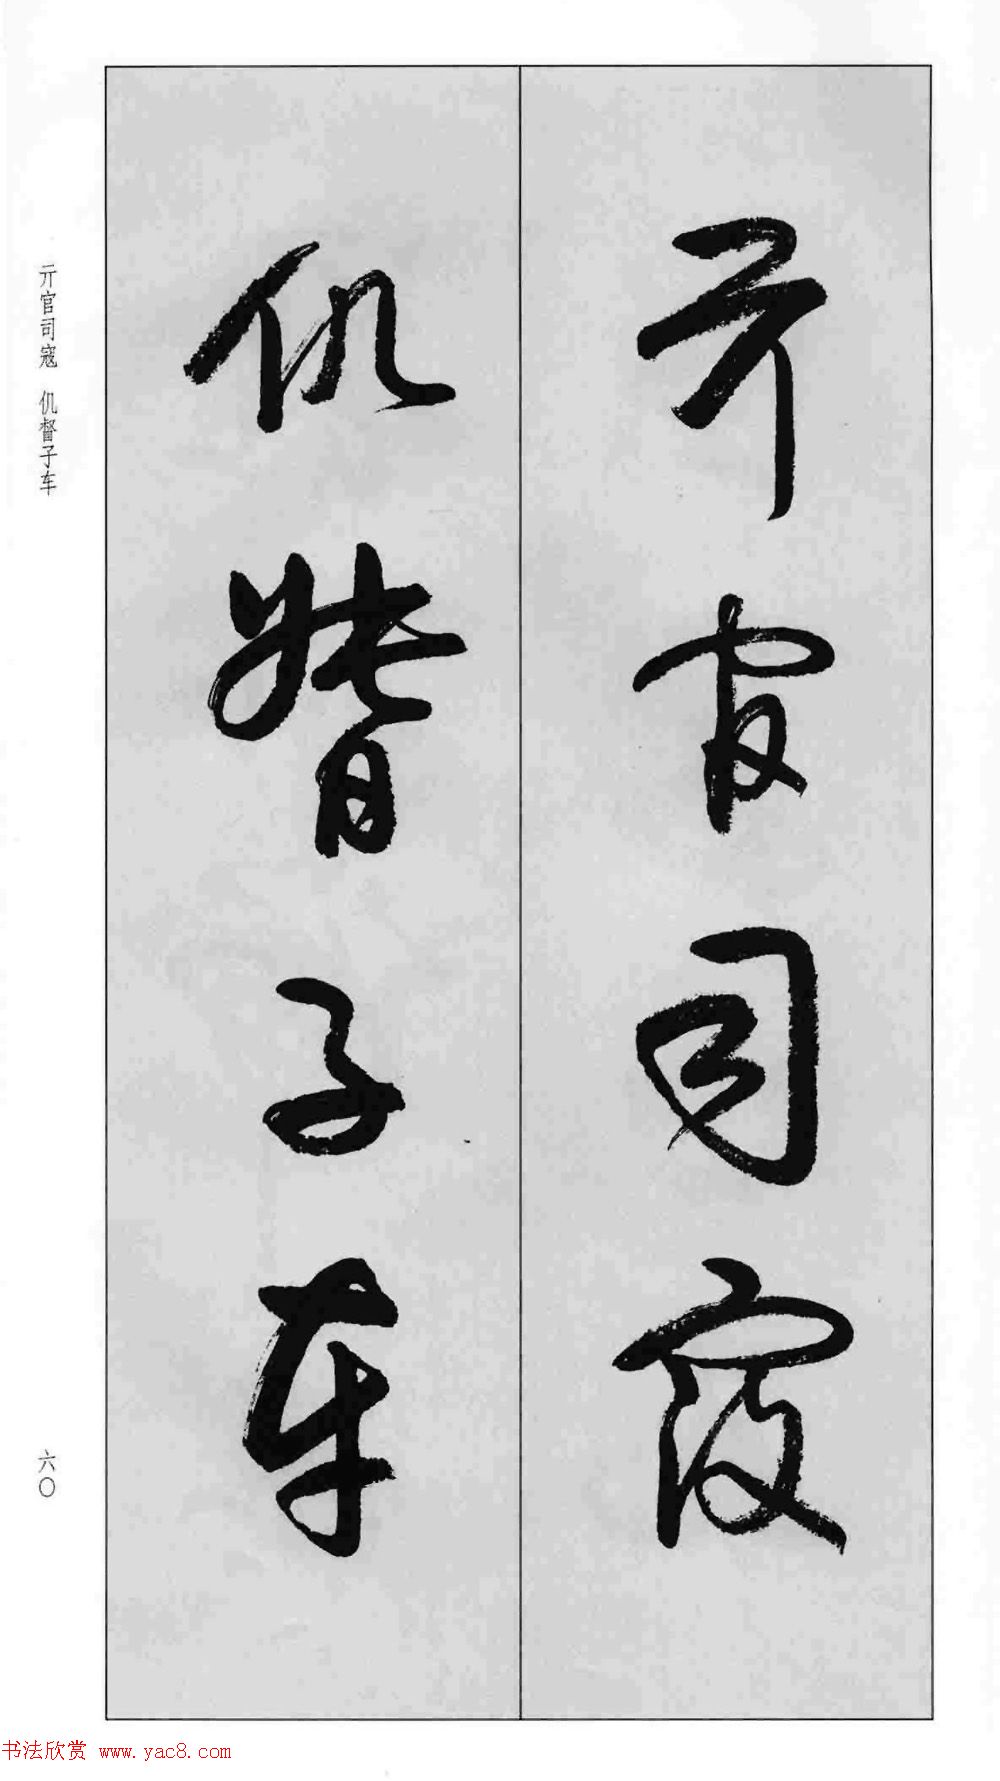 亓官司寇
仉督子车
亓官司寇 仉督子车
六〇
书法欣赏 www.yac8.com